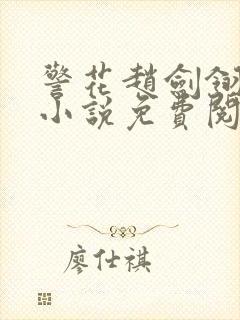 警花趙劍釵
小說免費閱
廖仕祺